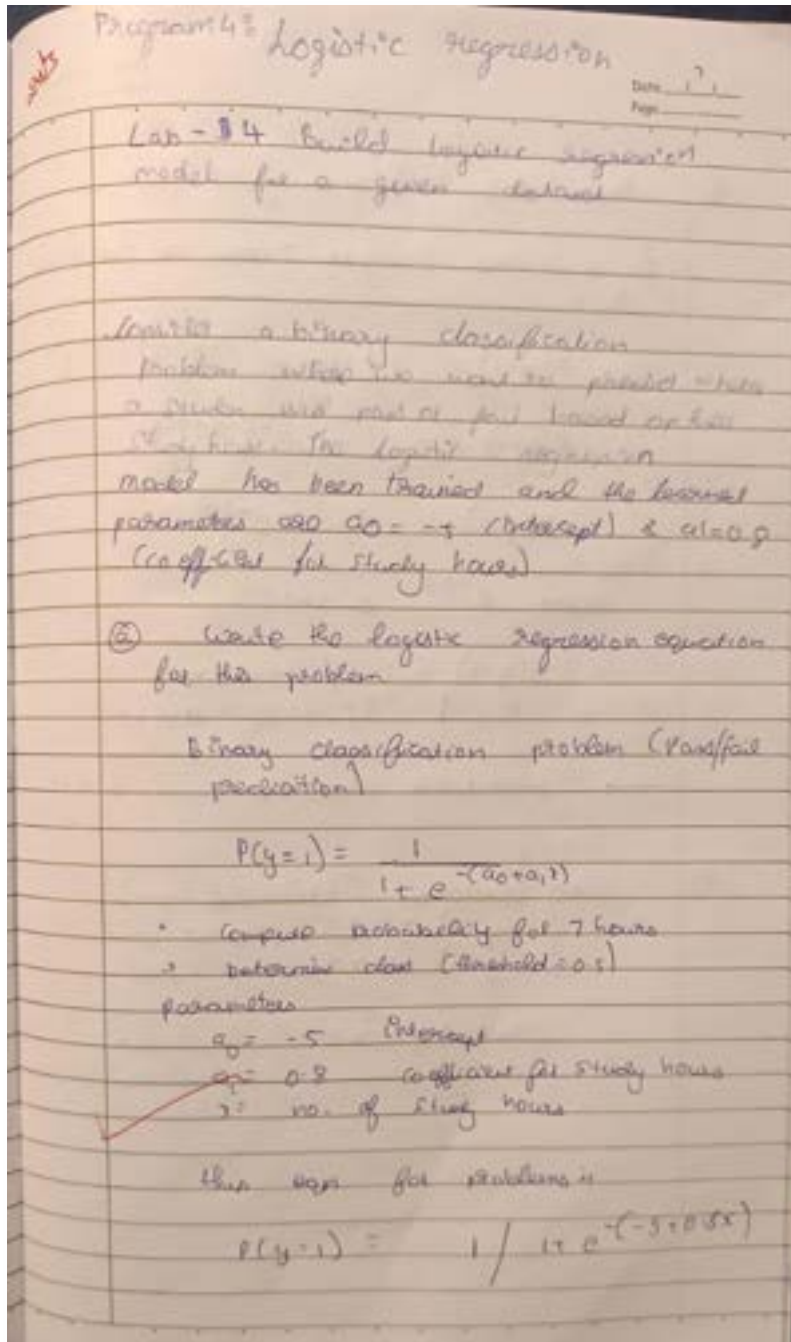 Program 4: Logistic regression
Date
Page
Lab - 4 Build logistic regression
model for a given dataset
Consider a binary classification
problem where we want to predict
a pass or fail based on
study hours. The logistic regression
model has been trained and the learned
parameters are a0 = (Intercept) & a1=0.8
(coefficient for study hours)
(a) Write the logistic regression equation
for this problem
Binary classification problem (Pass/fail
P(y=1) = 1 / 1+ e^-(a0+a1x)
Compute probability for 7 hours
Determine class (threshold = 0.5)
parameters
a0 = -5 Intercept
a1 = 0.8 coefficient for study hours
x = no. of study hours
thus eqn for problems is
P(y=1) = 1 / 1+ e